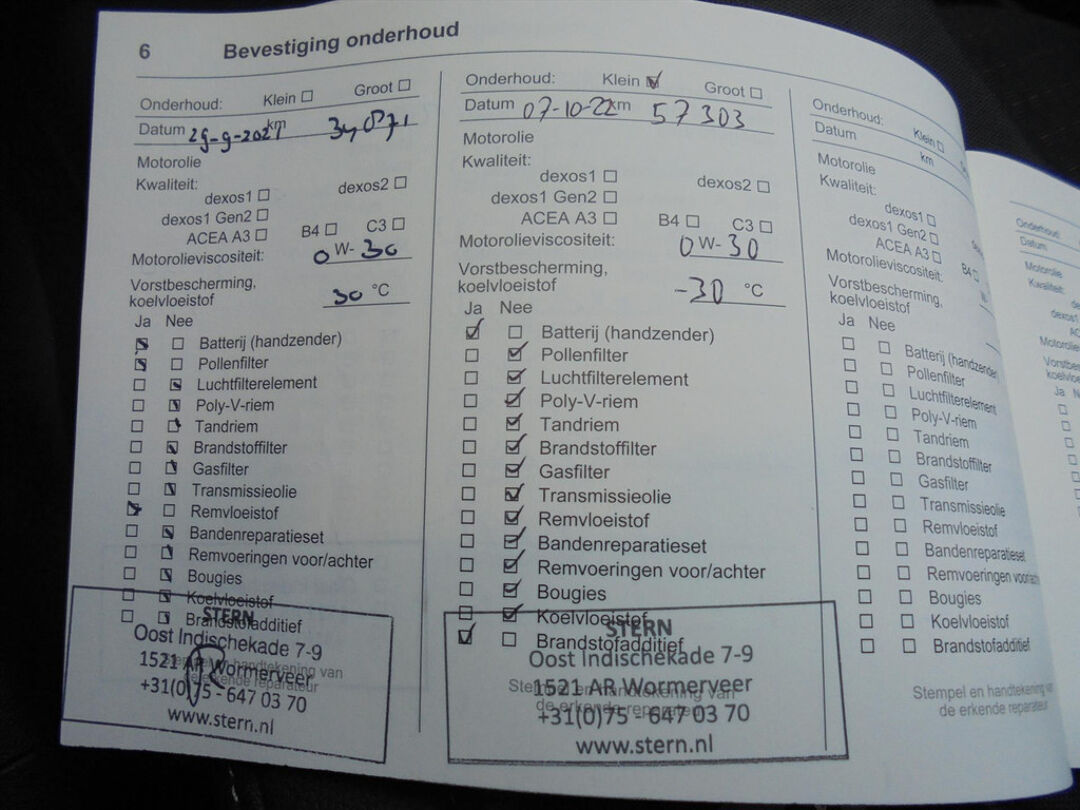 6 Bevestiging onderhoud
Onderhoud: Klein ☐ Groot ☐
Datum 29-9-2021 km 34071
Motorolie
Kwaliteit:
dexos1 ☐ dexos2 ☐
dexos1 Gen2 ☐
ACEA A3 ☐ B4 ☐ C3 ☐
Motorolieviscositeit: 0 W- 30
Vorstbescherming,
koelvloeistof 30 °C
Ja Nee
☑ ☐ Batterij (handzender)
☑ ☐ Pollenfilter
☐ ☑ Luchtfilterelement
☐ ☑ Poly-V-riem
☐ ☑ Tandriem
☐ ☑ Brandstoffilter
☐ ☑ Gasfilter
☐ ☑ Transmissieolie
☑ ☐ Remvloeistof
☐ ☑ Bandenreparatieset
☐ ☑ Remvoeringen voor/achter
☐ ☑ Bougies
☐ ☑ Koelvloeistof
☐ ☑ Brandstofadditief
Stempel en handtekening van
de erkende reparateur
STERN
Oost Indischekade 7-9
1521 AR Wormerveer
+31(0)75 - 647 03 70
www.stern.nl
Onderhoud: Klein ☑ Groot ☐
Datum 07-10-22 km 57303
Motorolie
Kwaliteit:
dexos1 ☐ dexos2 ☐
dexos1 Gen2 ☐
ACEA A3 ☐ B4 ☐ C3 ☐
Motorolieviscositeit: 0 W- 30
Vorstbescherming,
koelvloeistof -30 °C
Ja Nee
☑ ☐ Batterij (handzender)
☐ ☑ Pollenfilter
☐ ☑ Luchtfilterelement
☐ ☑ Poly-V-riem
☐ ☑ Tandriem
☐ ☑ Brandstoffilter
☐ ☑ Gasfilter
☐ ☑ Transmissieolie
☐ ☑ Remvloeistof
☐ ☑ Bandenreparatieset
☐ ☑ Remvoeringen voor/achter
☐ ☑ Bougies
☐ ☑ Koelvloeistof
☑ ☐ Brandstofadditief
Stempel en handtekening van
de erkende reparateur
STERN
Oost Indischekade 7-9
1521 AR Wormerveer
+31(0)75 - 647 03 70
www.stern.nl
Onderhoud: Klein ☐
Datum km
Motorolie
Kwaliteit:
dexos1 ☐
dexos1 Gen2 ☐
ACEA A3 ☐ B4 ☐
Motorolieviscositeit:
Vorstbescherming,
koelvloeistof
Ja Nee
☐ ☐ Batterij (handzender
☐ ☐ Pollenfilter
☐ ☐ Luchtfilterelement
☐ ☐ Poly-V-riem
☐ ☐ Tandriem
☐ ☐ Brandstoffilter
☐ ☐ Gasfilter
☐ ☐ Transmissieolie
☐ ☐ Remvloeistof
☐ ☐ Bandenreparatieset
☐ ☐ Remvoeringen
☐ ☐ Bougies
☐ ☐ Koelvloeistof
☐ ☐ Brandstofadditief
Stempel en handtekening
de erkende reparateur
Onderhoud:
Datum
Motorolie
Kwaliteit:
Ja